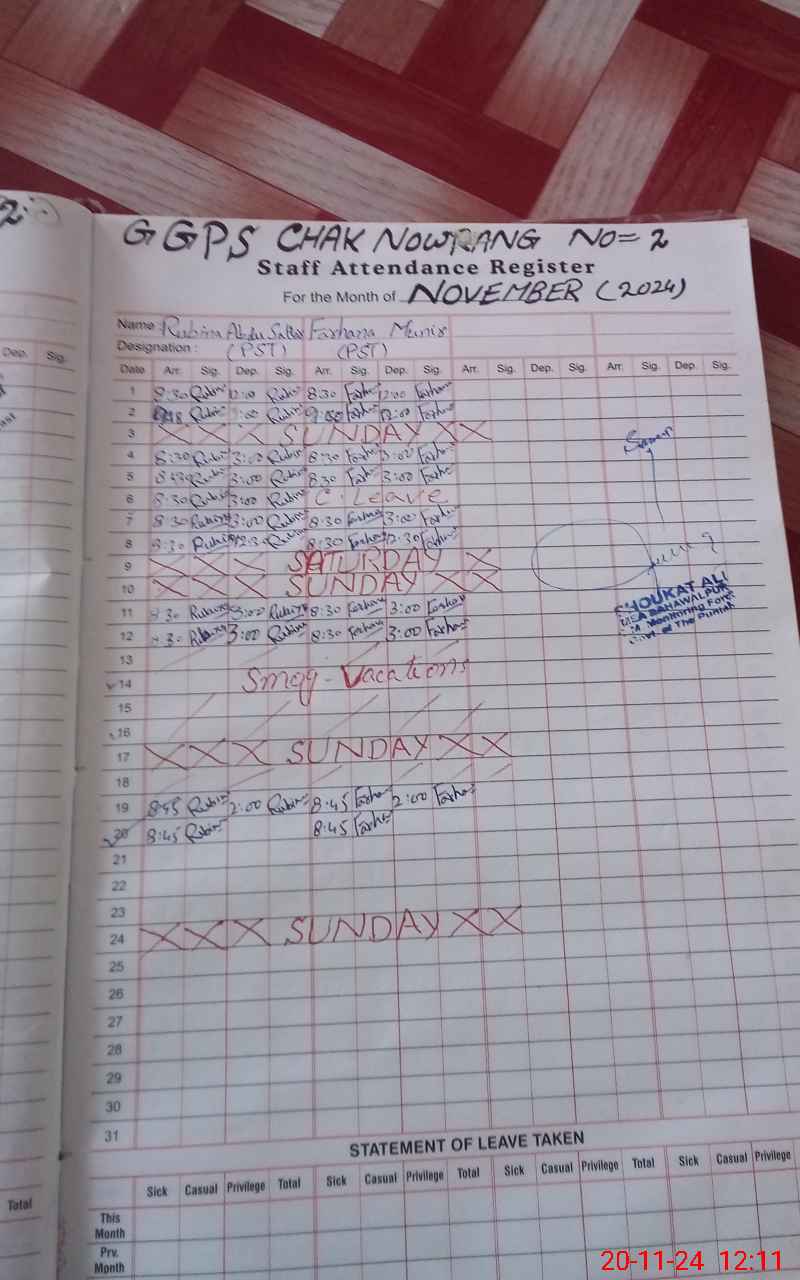 2
GGPS CHAK NOWRANG NO=2
Staff Attendance Register
For the Month of NOVEMBER (2024)
Name : Rubina Abdul Sattar Farhana Munir
Designation : (PST) (PST)
Dep. Sig.
Date Arr. Sig. Dep. Sig. Arr. Sig. Dep. Sig. Arr. Sig. Dep. Sig. Arr. Sig. Dep. Sig.
1 8:30 Rubina 12:00 Rubina 8:30 Farhana 12:00 Farhana
2 Rubina Rubina Farhana 12:00 Farhana
3 X X X SUNDAY X X
4 8:30 Rubina 3:00 Rubina 8:30 Farhana 3:00 Farhana
5 Rubina 3:00 Rubina 8:30 Farhana 3:00 Farhana
6 8:30 Rubina 3:00 Rubina C. Leave
7 8:30 Rubina 3:00 Rubina 8:30 Farhana 3:00 Farhana
8 8:30 Rubina 12:30 Rubina 8:30 Farhana 12:30 Farhana
9 X X X SATURDAY X
10 X X X SUNDAY X X
11 8:30 Rubina 3:00 Rubina 8:30 Farhana 3:00 Farhana
12 8:30 Rubina 3:00 Rubina 8:30 Farhana 3:00 Farhana
SHOUKAT ALI
MEA BAHAWALPUR
Monitoring Force
Govt of The Punjab
13
14 Smog-Vacations
15
16
17 X X X SUNDAY X X
18
19 8:45 Rubina 2:00 Rubina 8:45 Farhana 2:00 Farhana
20 8:45 Rubina 8:45 Farhana
21
22
23
24 X X X SUNDAY X X
25
26
27
28
29
30
31
STATEMENT OF LEAVE TAKEN
Sick Casual Privilege Total Sick Casual Privilege Total Sick Casual Privilege Total Sick Casual Privilege
Total
This Month
Prv. Month
20-11-24 12:11